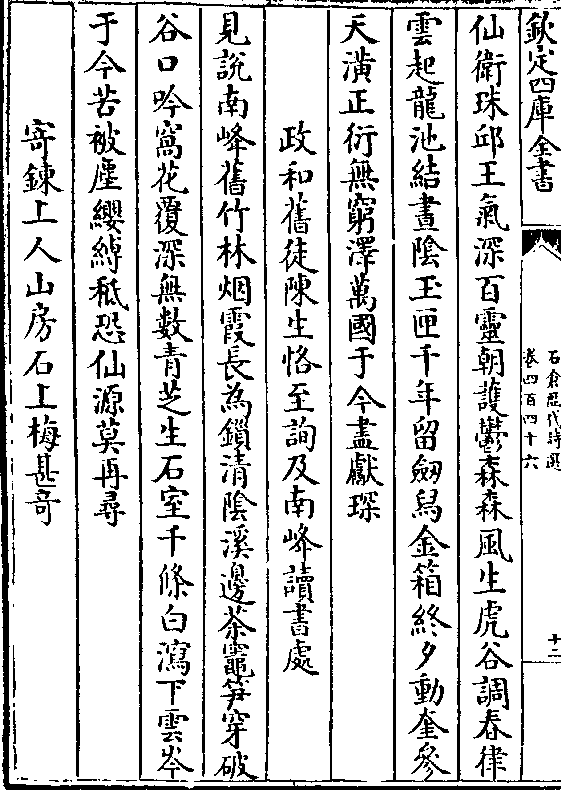 欽定四庫全書
石倉歷代詩選
卷四百四十六
十二
仙衛珠邱王氣深百靈朝護鬱森森風生虎谷調春律
雲起龍池結晝陰玉匣千年留劒舄金箱終夕動奎參
天潢正衍無窮澤萬國于今盡獻琛
政和舊徒陳生恪至詢及南峰讀書處
見說南峰舊竹林烟霞長為鎖清陰溪邊茶竈笋穿破
谷口吟窩花覆深無數青芝生石室千條白瀉下雲岑
于今苦被塵纓縛秪恐仙源莫再尋
寄鍊上人山房石上梅甚奇